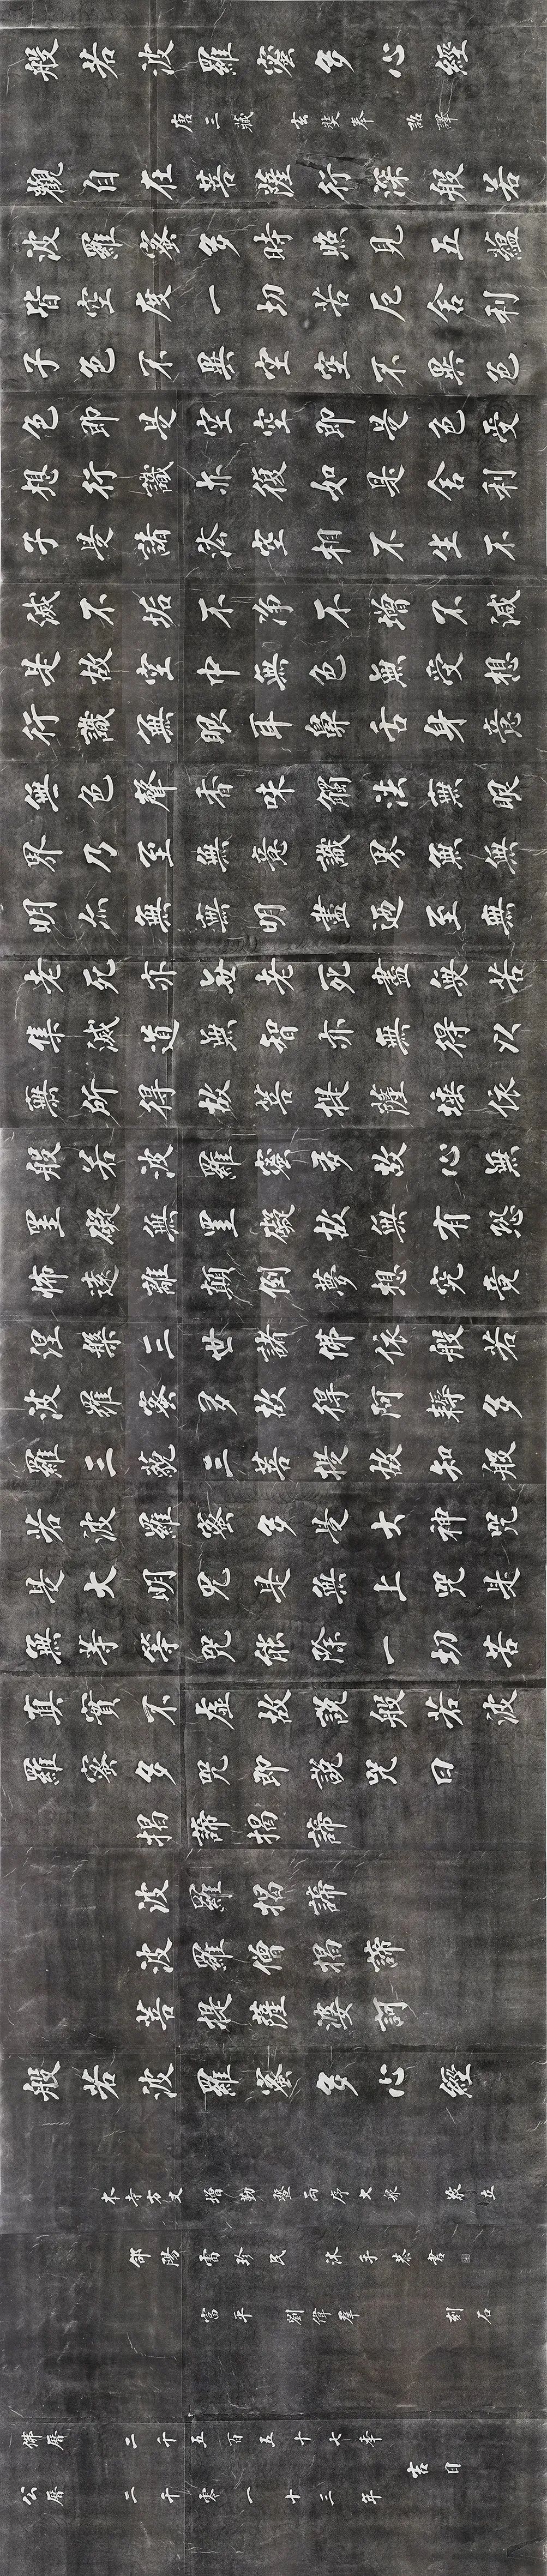 般若波羅蜜多心經
唐三藏玄奘奉詔譯
觀自在菩薩行深般若
波羅蜜多時照見五蘊
皆空度一切苦厄舍利
子色不異空空不異色
色即是空空即是色受
想行識亦復如是舍利
子是諸法空相不生不
滅不垢不净不增不減
是故空中無色無受想
行識無眼耳鼻舌身意
無色聲香味觸法無眼
界乃至無意識界無無
明亦無無明盡迺至無
老死亦無老死盡無苦
集滅道無智亦無得以
無所得故菩提薩埵依
般若波羅蜜多故心無
罣礙無罣礙故無有恐
怖遠離顛倒夢想究竟
涅槃三世諸佛依般若
波羅蜜多故得阿耨多
羅三藐三菩提故知般
若波羅蜜多是大神咒
是大明咒是無上咒是
無等等咒能除一切苦
真實不虛故說般若波
羅蜜多咒即說咒曰
揭諦揭諦
波羅揭諦
波羅僧揭諦
菩提薩婆訶
般若波羅蜜多心經
本寺方丈增勤暨兩序大眾敬立
郃陽雷珍民沐手恭書
富平劉偉羣刻石
佛曆二千五百五十七年
吉日
公曆二千零一十三年